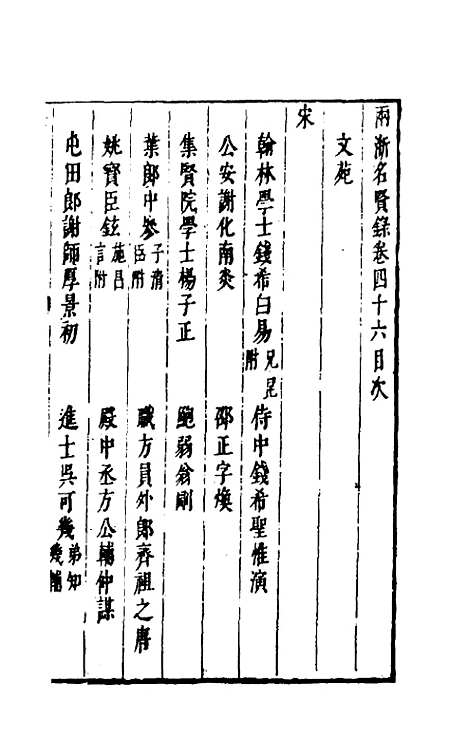 兩浙名賢錄卷四十六目次
文苑
宋
翰林學士錢希白易兄昆附　侍中錢希聖惟演
公安謝化南炎　邵正字煥
集賢院學士楊子正　鮑弱翁剛
葉郎中參子清臣附　職方員外郎齊祖之唐
姚寶臣鉉施昌言附　殿中丞方公輔仲謀
屯田郎謝師厚景初　進士吳可幾弟知幾輔